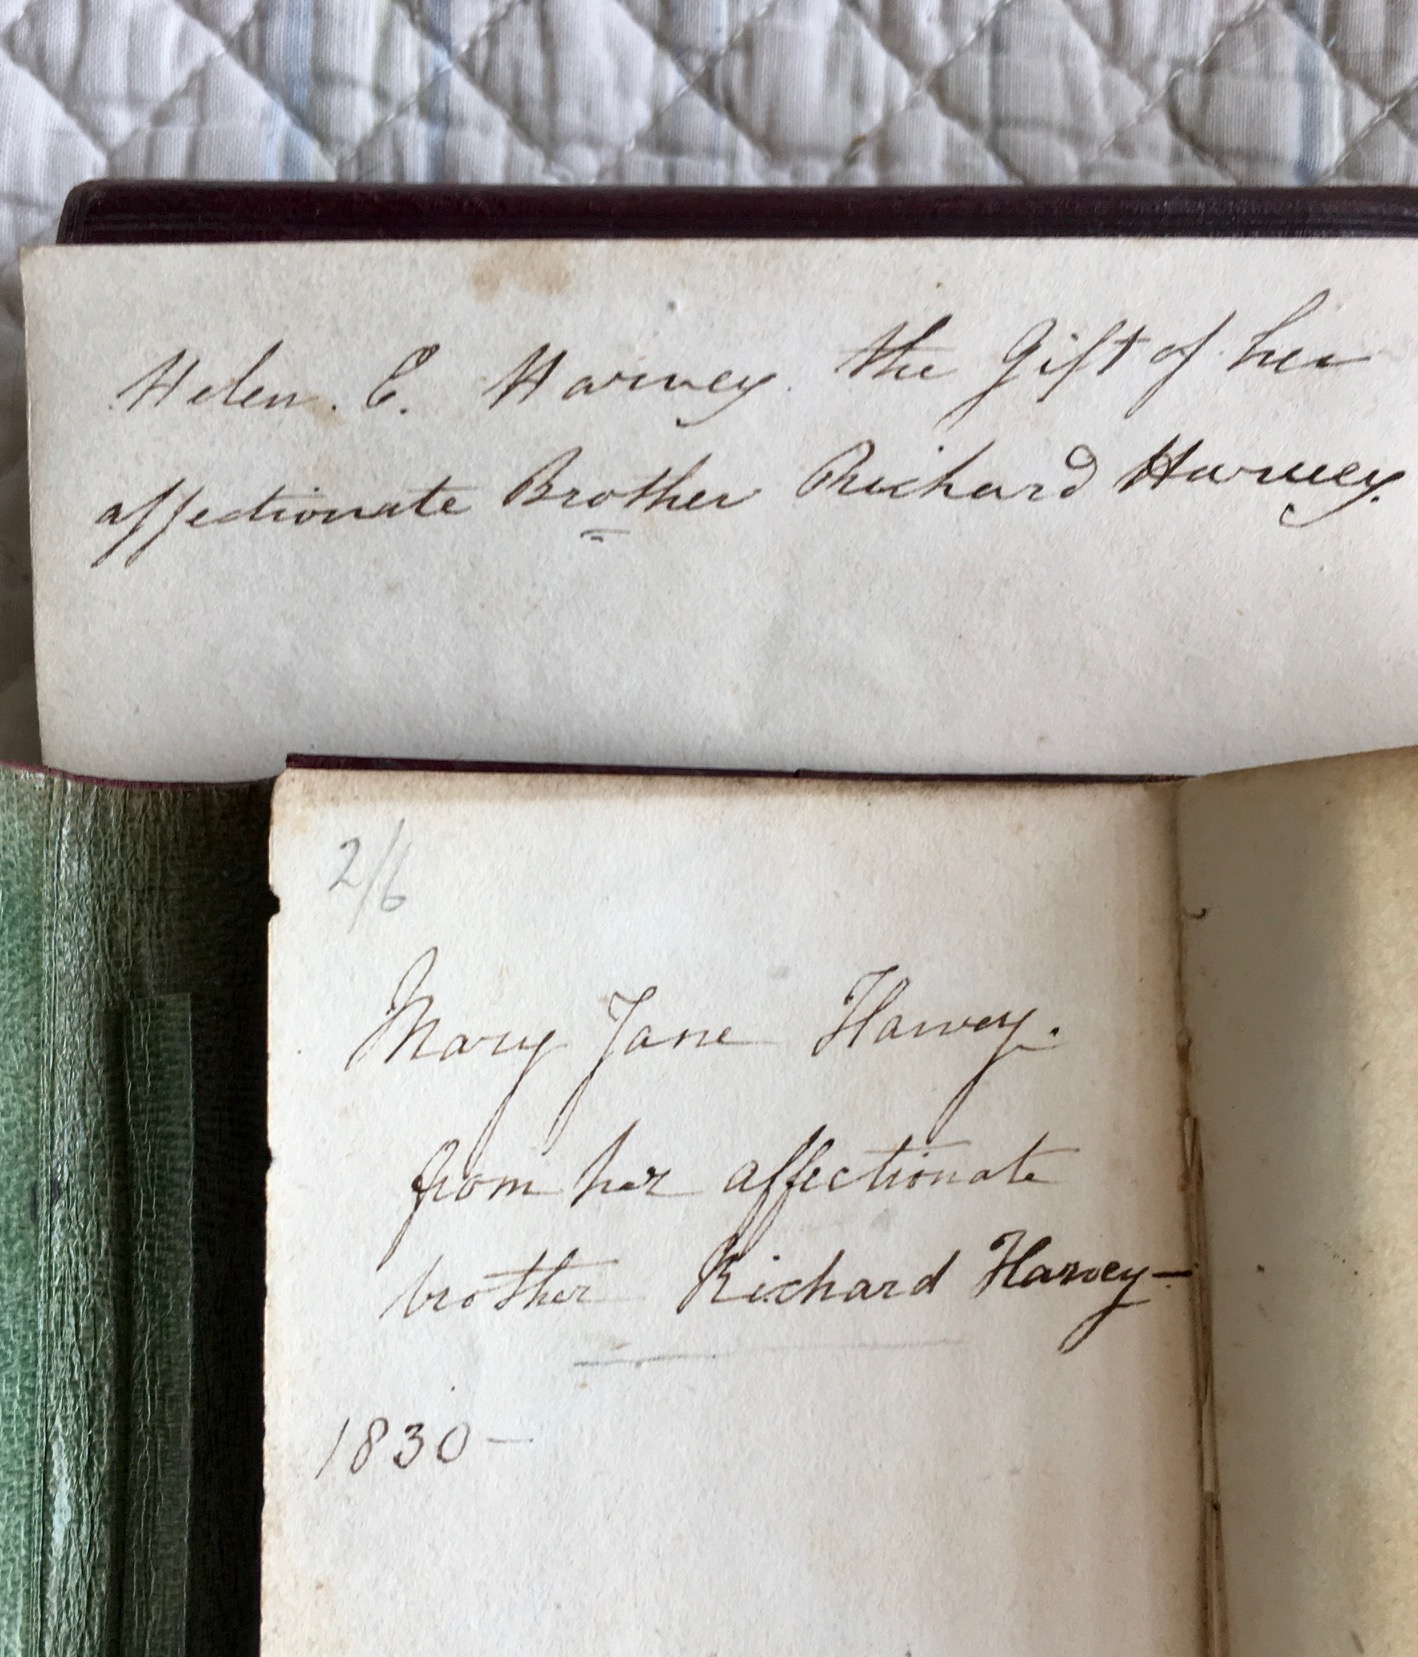 Helen. E. Harvey. the Gift of her
affectionate Brother Richard Harvey.
2/6
Mary Jane Harvey.
from her affectionate
brother Richard Harvey-
1830-